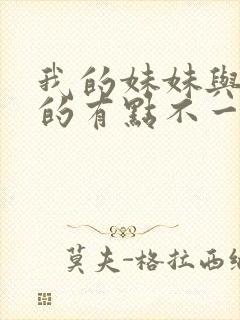 我的妹妹與
的有點不一
莫夫-格拉西